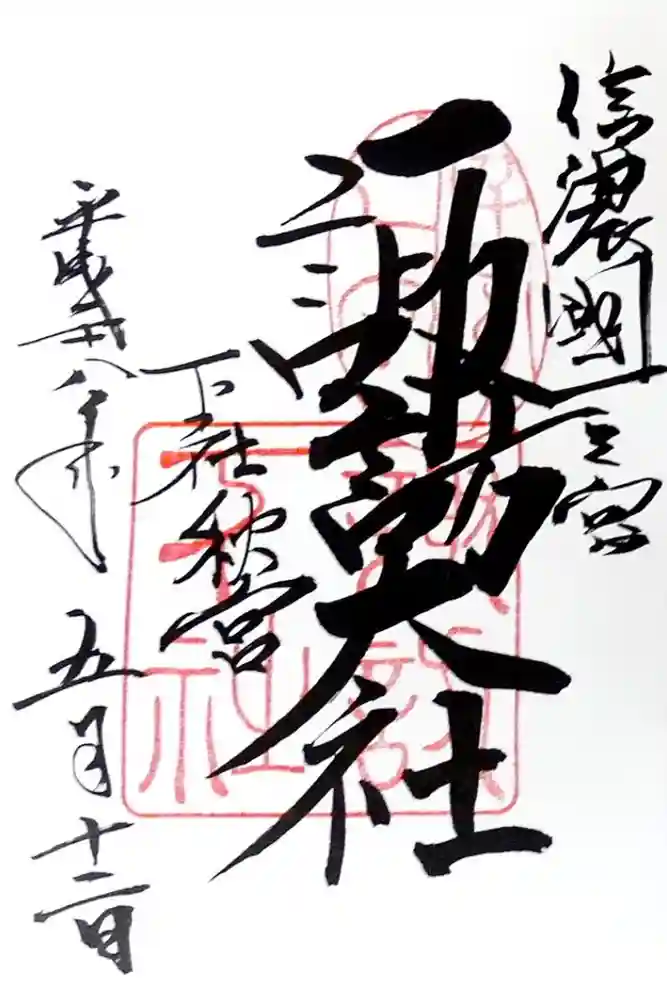 信濃國一之宮
諏訪大社
下社秋宮
平成廿八年五月十二日